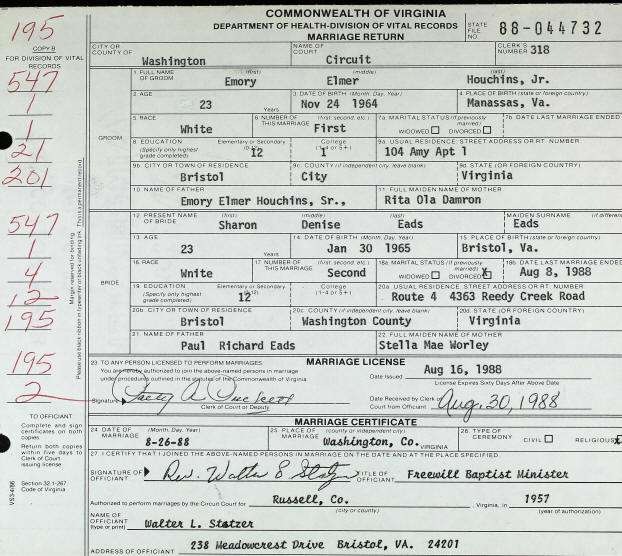 COMMONWEALTH OF VIRGINIA
DEPARTMENT OF HEALTH-DIVISION OF VITAL RECORDS
MARRIAGE RETURN
STATE FILE NO. 88-044732
195
COPY B
FOR DIVISION OF VITAL RECORDS
547
1
1
21
201
547
1
4
12
195
195
2
CITY OR COUNTY OF Washington
NAME OF COURT Circuit
CLERK'S NUMBER 318
GROOM
1. FULL NAME OF GROOM (first) Emory (middle) Elmer (last) Houchins, Jr.
2. AGE 23 Years
3. DATE OF BIRTH (Month, Day, Year) Nov 24 1964
4. PLACE OF BIRTH (state or foreign country) Manassas, Va.
5. RACE White
6. NUMBER OF THIS MARRIAGE (first, second, etc.) First
7a. MARITAL STATUS (If previously married) WIDOWED DIVORCED
7b. DATE LAST MARRIAGE ENDED
8. EDUCATION (Specify only highest grade completed) Elementary or Secondary (0-12) 12 College (1-4 or 5+) 1
9a. USUAL RESIDENCE: STREET ADDRESS OR RT. NUMBER 104 Amy Apt 1
9b. CITY OR TOWN OF RESIDENCE Bristol
9c. COUNTY (if independent city, leave blank) City
9d. STATE (OR FOREIGN COUNTRY) Virginia
10. NAME OF FATHER Emory Elmer Houchins, Sr.,
11. FULL MAIDEN NAME OF MOTHER Rita Ola Damron
BRIDE
12. PRESENT NAME OF BRIDE (first) Sharon (middle) Denise (last) Eads MAIDEN SURNAME (if different) Eads
13. AGE 23 Years
14. DATE OF BIRTH (Month, Day, Year) Jan 30 1965
15. PLACE OF BIRTH (state or foreign country) Bristol, Va.
16. RACE White
17. NUMBER OF THIS MARRIAGE (first, second, etc.) Second
18a. MARITAL STATUS (If previously married) WIDOWED DIVORCED X
18b. DATE LAST MARRIAGE ENDED Aug 8, 1988
19. EDUCATION (Specify only highest grade completed) Elementary or Secondary (0-12) 12 College (1-4 or 5+)
20a. USUAL RESIDENCE: STREET ADDRESS OR RT. NUMBER Route 4 4363 Reedy Creek Road
20b. CITY OR TOWN OF RESIDENCE Bristol
20c. COUNTY (if independent city, leave blank) Washington County
20d. STATE (OR FOREIGN COUNTRY) Virginia
21. NAME OF FATHER Paul Richard Eads
22. FULL MAIDEN NAME OF MOTHER Stella Mae Worley
MARRIAGE LICENSE
23. TO ANY PERSON LICENSED TO PERFORM MARRIAGES:
You are hereby authorized to join the above-named persons in marriage
under procedures outlined in the statutes of the Commonwealth of Virginia.
Date Issued Aug 16, 1988
License Expires Sixty Days After Above Date
Signature
Clerk of Court or Deputy
Date Received by Clerk of Court from Official Aug. 30, 1988
MARRIAGE CERTIFICATE
24. DATE OF MARRIAGE (Month, Day, Year) 8-26-88
25. PLACE OF MARRIAGE (county or independent city) Washington, Co. VIRGINIA
26. TYPE OF CEREMONY CIVIL RELIGIOUS
27. I CERTIFY THAT I JOINED THE ABOVE-NAMED PERSONS IN MARRIAGE ON THE DATE AND AT THE PLACE SPECIFIED.
SIGNATURE OF OFFICIANT Rev. Walter L Statzer TITLE OF OFFICIANT Freewill Baptist Minister
Authorized to perform marriages by the Circuit Court for Russell, Co. , Virginia, in 1957
(city or county) (year of authorization)
NAME OF OFFICIANT (type or print) Walter L. Statzer
ADDRESS OF OFFICIANT 238 Meadowcrest Drive Bristol, VA. 24201
TO OFFICIANT
Complete and sign certificates on both copies
Return both copies within five days to Clerk of Court issuing license
Section 32.1-267, Code of Virginia
Margin reserved for binding
Please use black ribbon in typewriter or black unfading ink. This is a permanent record.